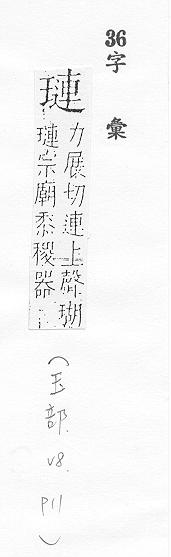 36
字彙
璉力展切連上聲瑚
璉宗廟黍稷器
(玉部.
v8.
P11)